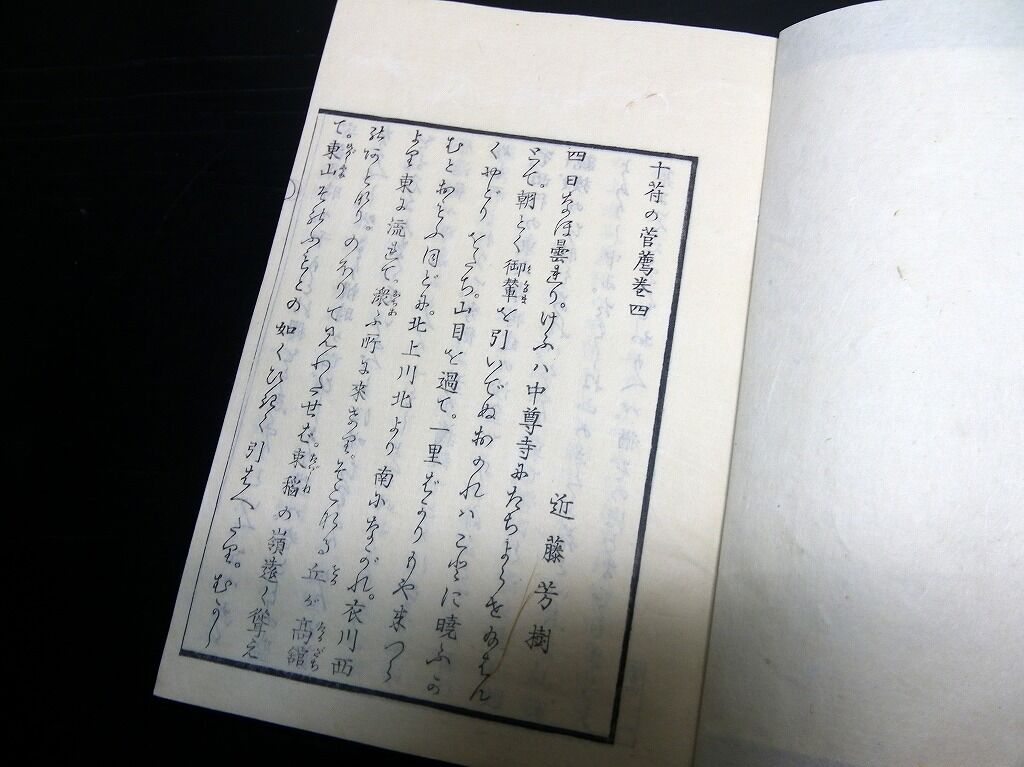 十符の菅薦巻四
近藤芳樹
四日なほ曇れり。けふハ中尊寺にたちよらせ給はん
とて。朝とく御輦を引いでぬおのれハことに暁ふか
くやどりをたち。山目を過て。一里ばかりもや来つら
むとおもふほどに。北上川北より南にながれ。衣川西
より東に流れて。落合ふ所に来ま里。そこなる丘が高舘
のあとなり。のぼりて見わたせば。東稲の嶺遠く聳え
て。東山そのふもとの如くひきく引はへたり。むかし